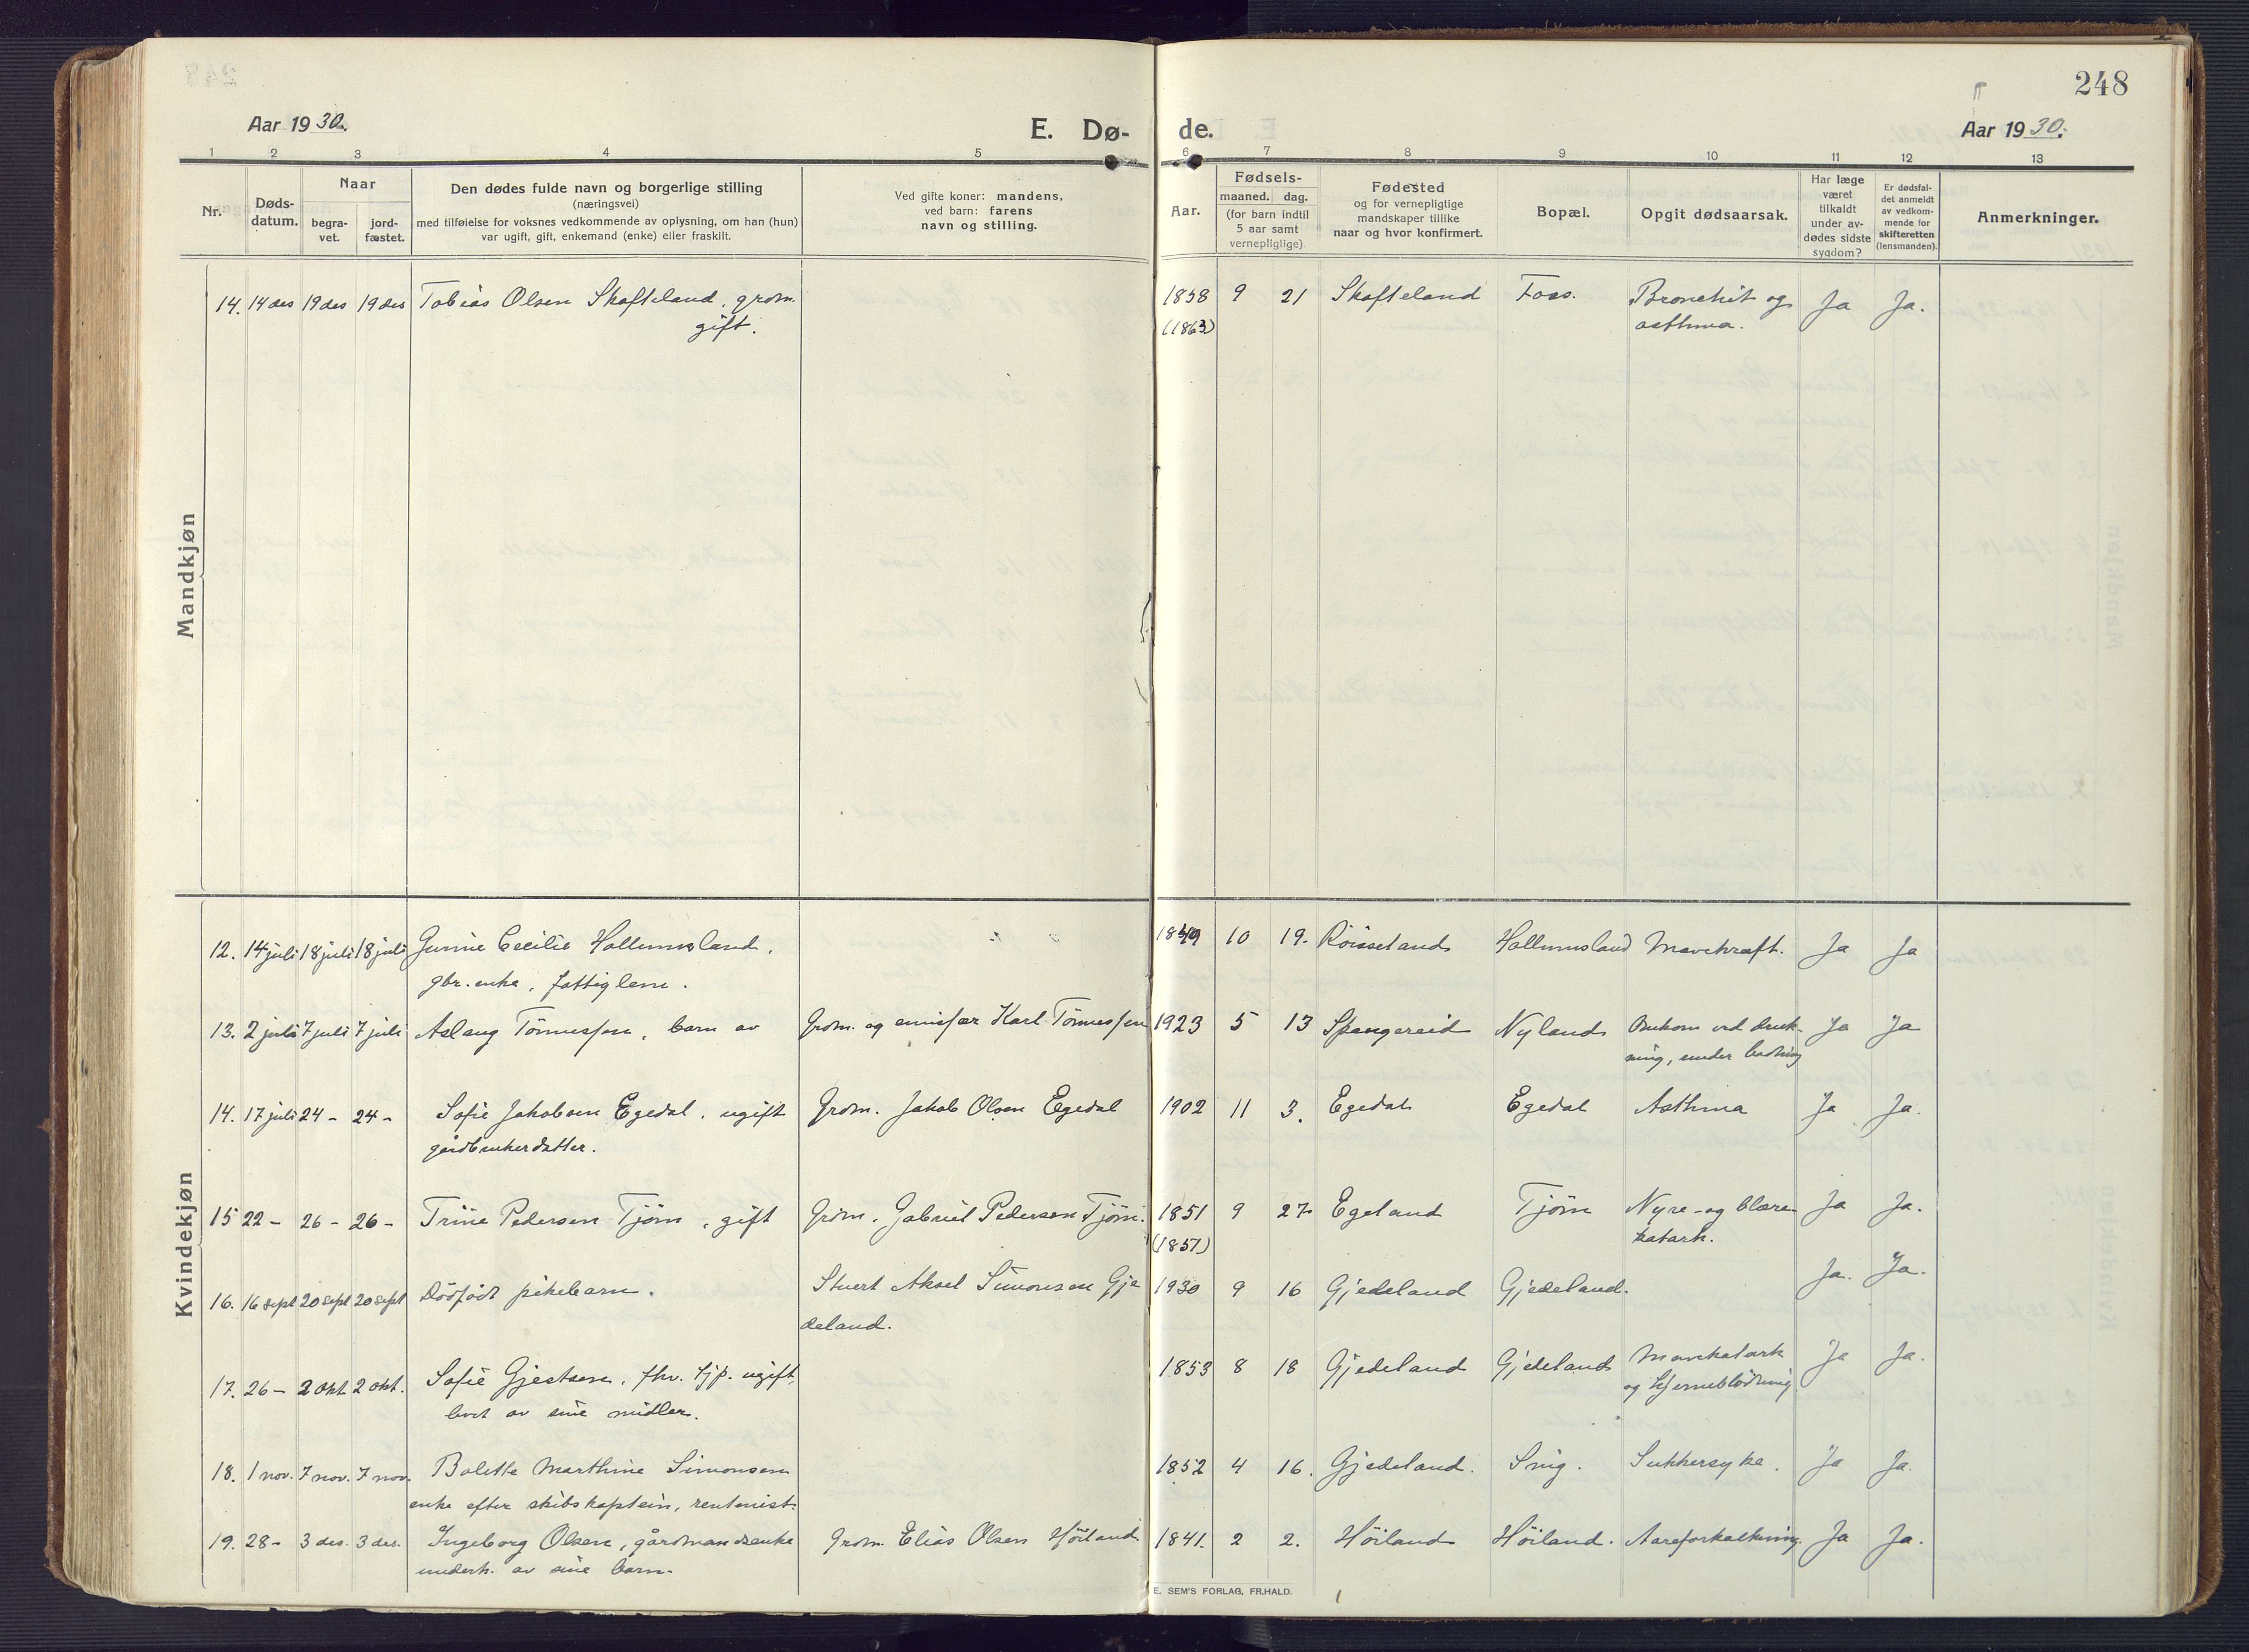 248
Aar 1930.
E. Dø- de.
Aar 1930.
1 2 3 4 5 6 7 8 9 10 11 12 13
Nr.
Døds-
datum.
Naar
begra-
vet.
jord-
fæstet.
Den dødes fulde navn og borgerlige stilling
(næringsvei)
med tilføielse for voksnes vedkommende av oplysning, om han (hun)
var ugift, gift, enkemand (enke) eller fraskilt.
Ved gifte koner: mandens,
ved barn: farens
navn og stilling.
Aar.
Fødsels-
maaned. dag.
(for barn indtil
5 aar samt
vernepligtige)
Fødested
og for vernepligtige
mandskaper tillike
naar og hvor konfirmert.
Bopæl.
Opgit dødsaarsak.
Har læge
været
tilkaldt
under av-
dødes sidste
sygdom?
Er dødsfal-
det anmeldt
av vedkom-
mende for
skifteretten
(lensmanden).
Anmerkninger.
Mandkjøn
14. 14 des 19 des 19 des Tobias Olsen Skofteland, grdm. 1858 9 21 Skofteland Foss. Bronchit og Ja Ja.
gift. (1863) asthma.
Kvindekjøn
12. 14 juli 18 juli 18 juli Gunnie Cecilie Hallumsland, 1849 10 19. Röisseland Hallumsland Mavekræft. Ja Ja
gbr. enke, fattiglem.
13. 2 juli 7 juli 7 juli Aslaug Tönnessen, barn av Grdm. og emisær Karl Tönnessen 1923 5 13 Spangereid Nyland Omkom ved druk- Ja Ja
ning, under badning
14. 17 juli 24 - 24 - Sofie Jakobsen Egedal, ugift Grdm. Jakob Olsen Egedal 1902 11 3. Egedal Egedal Asthma Ja Ja.
gårdbrukerdatter.
15 22 - 26 - 26 - Trine Pedersen Tjöm, gift Grdm. Gabriel Pedersen Tjöm. 1851 9 27 Egeland Tjöm Nyre- og blære Ja Ja.
(1857) katarh.
16. 16 sept 20 sept 20 sept Dödfödt pikebarn. Stuert Aksel Simonsen Gje 1930 9 16 Gjedeland Gjedeland. Ja. Ja.
deland.
17. 26 - 2 okt. 2 okt. Sofie Gjertsen, fhv. tjp. ugift, 1853 8 18 Gjedeland Gjedeland Mavekatarh Ja Ja.
levet av sine midler. og hjerneblödning
18. 1 nov. 7 nov. 7 nov. Bolette Marthine Simonsen 1852 4 16. Gjedeland. Snig. Sukkersyke. Ja Ja.
enke efter skibskaptein, rentenist.
19. 28 - 3 des. 3 des. Ingeborg Olsen, gårdmandsenke Grdm. Elias Olsen Höiland 1841. 2 2. Höiland Höiland. Aareforkalkning. Ja Ja.
underh. av sine barn.
E. SEM'S FORLAG, FR.HALD.